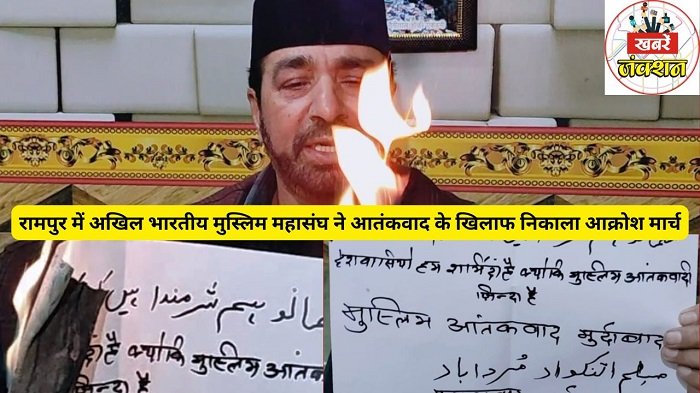 खबरें
जंक्शन
रामपुर में अखिल भारतीय मुस्लिम महासंघ ने आतंकवाद के खिलाफ निकाला आक्रोश मार्च
ہم شرمندا ہیں
है क्योंकि मुस्लिम आंतक
जिन्दा है
हम है क्योंकि मुस्लिम आंतकवादी
जिन्दा है
मुस्लिम आंतकवाद मुर्दाबाद
مسلم اتنکواد مرداباد